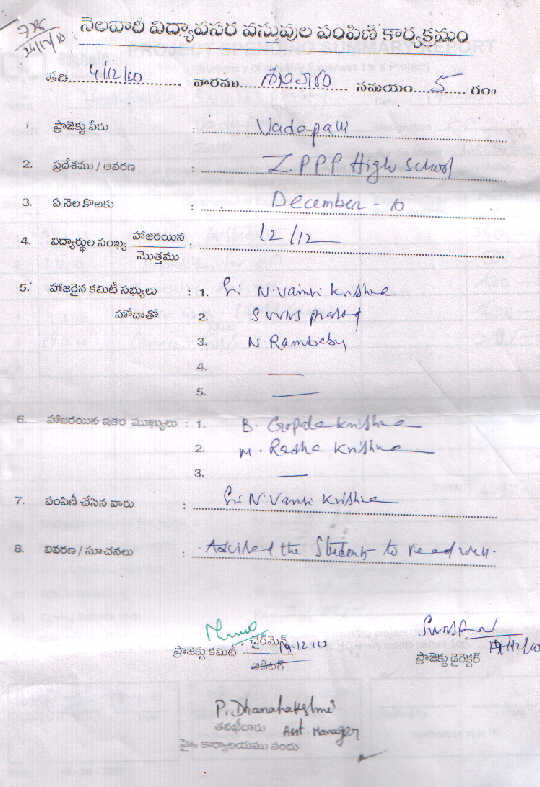 నెలవారి విద్యావసర వస్తువుల పంపిణి కార్యక్రమం
తేది 4/12/10 వారము శనివారం సమయం 5 గం॥
1. ప్రాజెక్టు పేరు : Vadapalli
2. ప్రదేశము / ఆవరణ : Z.PPP High School
3. ఏ నెల కొఱకు : December - 10
4. విద్యార్థుల సంఖ్య హాజరయిన / మొత్తము : 12/12
5. హాజరైన కమిటీ సభ్యులు : 1. Sri N. Vamsi Krishna
హోదాతో 2. prasad
3. N Rambabu
4. —
5. —
6. హాజరయిన ఇతర ముఖ్యులు : 1. B. Gopala Krishna
2. M. Radha Krishna
3. —
7. పంపిణీ చేసిన వారు : Sri N. Vamsi Krishna
8. వివరణ / సూచనలు : Advised the Students to read well.
ప్రాజెక్టు కమిటీ చైర్మెన్ 19.12.10
ప్రాజెక్టు డైరెక్టర్
P. Dhanalakshmi
తనిఖీదారు Asst. Manager
పై కార్యాలయము నందు